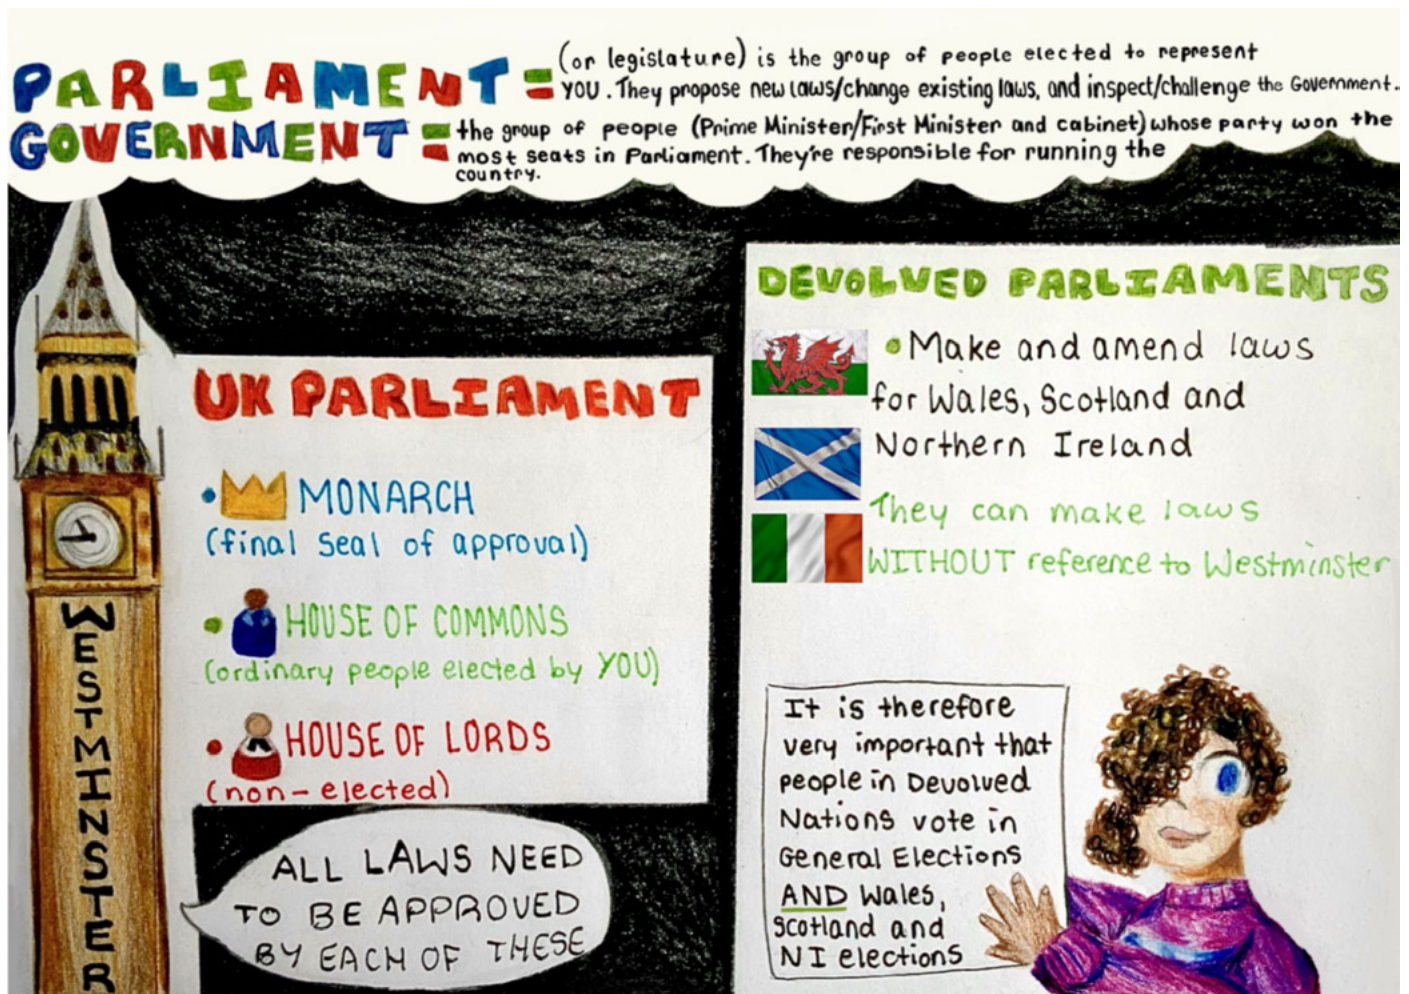 PARLIAMENT = (or legislature) is the group of people elected to represent
YOU. They propose new laws/change existing laws, and inspect/challenge the Government.
GOVERNMENT = the group of people (Prime Minister/First Minister and cabinet) whose party won the
most seats in Parliament. They're responsible for running the
country.
WESTMINSTER
UK PARLIAMENT
• MONARCH
(final seal of approval)
• HOUSE OF COMMONS
(ordinary people elected by YOU)
• HOUSE OF LORDS
(non-elected)
ALL LAWS NEED
TO BE APPROVED
BY EACH OF THESE
DEVOLVED PARLIAMENTS
• Make and amend laws
for Wales, Scotland and
Northern Ireland
They can make laws
WITHOUT reference to Westminster
It is therefore
very important that
people in Devolved
Nations vote in
General Elections
AND Wales,
Scotland and
NI elections